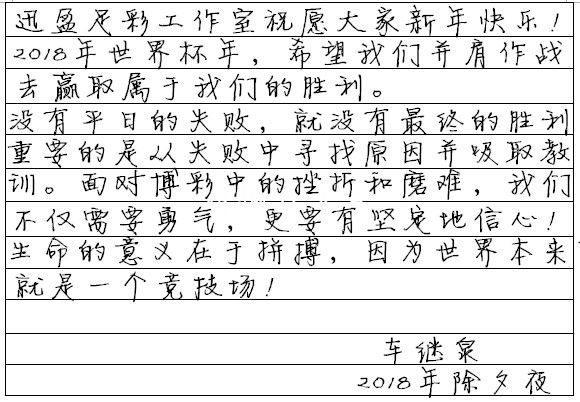 迅盈足彩工作室祝愿大家新年快乐！
2018年世界杯年，希望我们并肩作战
去赢取属于我们的胜利。
没有平日的失败，就没有最终的胜利
重要的是从失败中寻找原因并吸取教
训。面对博彩中的挫折和磨难，我们
不仅需要勇气，更要有坚定地信心！
生命的意义在于拼搏，因为世界本来
就是一个竞技场！
车继泉
2018年除夕夜